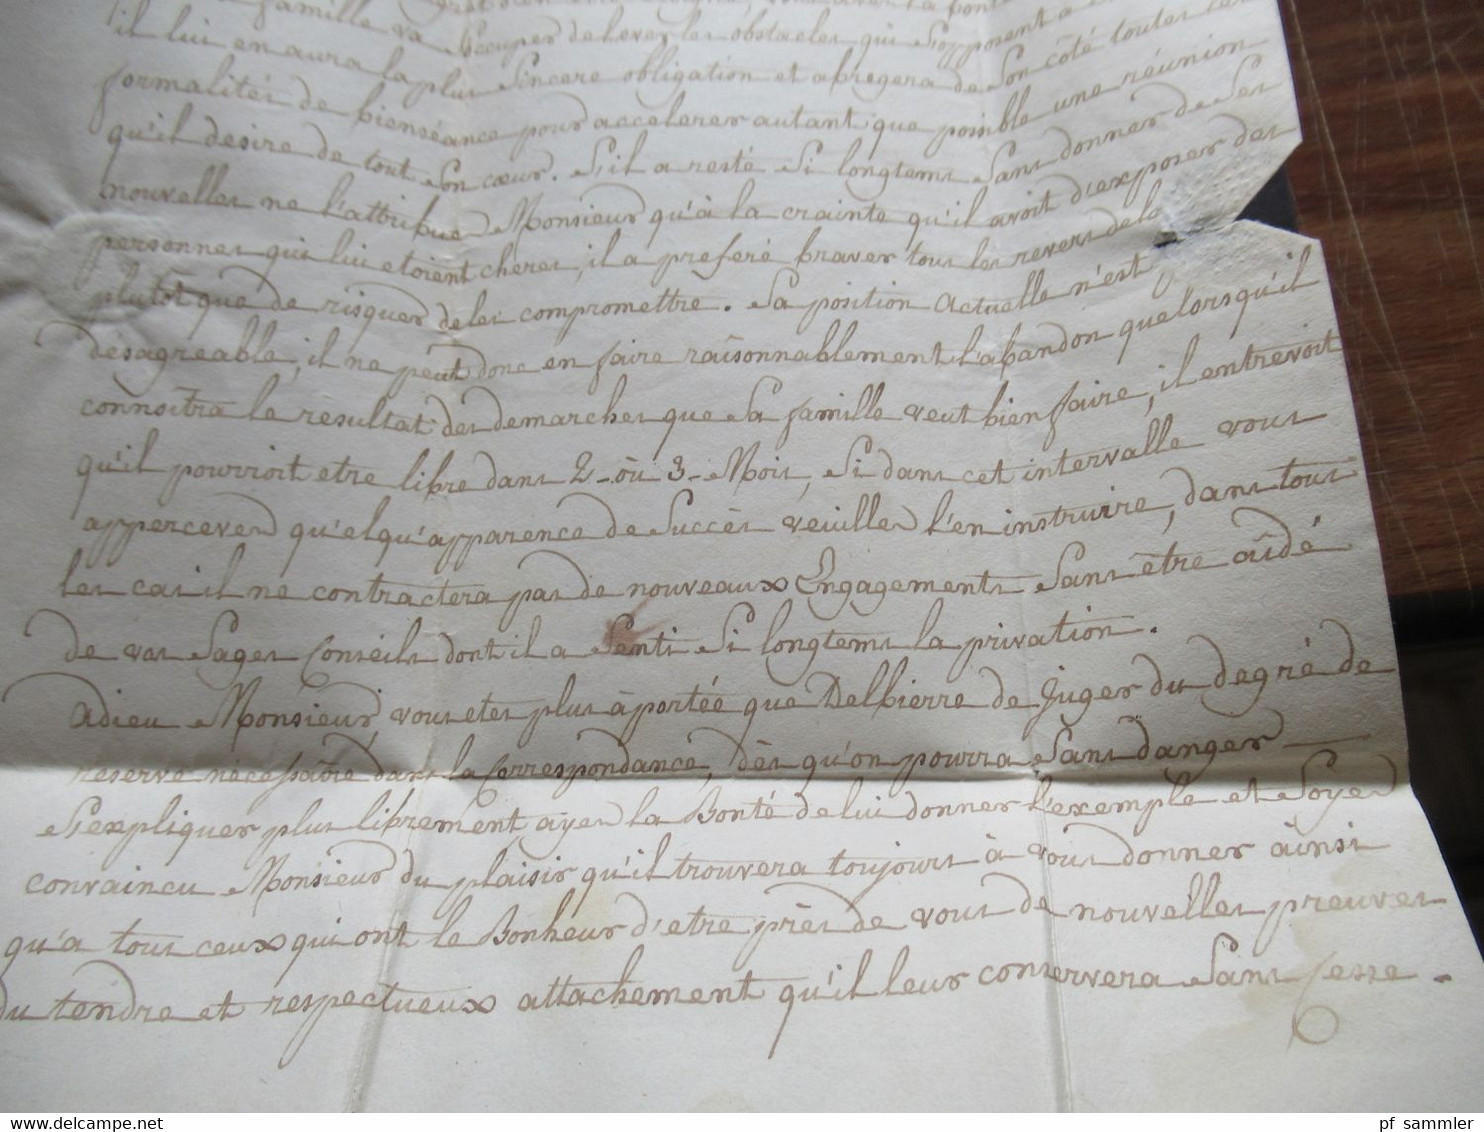 famille va s'occuper de lever les obstacles qui s'opposent à
il lui en aura la plus sincere obligation et abregera de son côté toutes les
formalités de bienséance pour accelerer autant que possible une réunion
qu'il desire de tout son cœur. S'il a resté si longtems sans donner de ses
nouvelles ne l'attribuer Monsieur qu'à la crainte qu'il avoit d'exposer des
personnes qui lui etoient cheres, il a preferé braver tous les revers de la
plutot que de risquer de les compromettre. Sa position actuelle n'est
désagreable, il ne peut donc en faire raisonnablement l'abandon que lorsqu'il
connoitra le resultat des demarches que sa famille veut bien faire, il entrevoit
qu'il pourroit etre libre dans 2 - ou 3 - Mois, si dans cet intervalle vous
appercever quelqu'apparence de succès veuiller l'en instruire, dans tous
les cas il ne contractera pas de nouveaux Engagements sans être aidé
de vos sages Conseils dont il a senti si longtems la privation.
Adieu Monsieur, vous etes plus à portée que Delpierre de juger du degré de
reserve nécessaire dans la Correspondance, dès qu'on pourra sans danger
s'expliquer plus librement, ayer la Bonté de lui donner l'exemple et soyer
convaincu Monsieur du plaisir qu'il trouvera toujours à vous donner ainsi
qu'a tous ceux qui ont le Bonheur d'etre près de vous de nouvelles preuves
du tendre et respectueux attachement qu'il leur conservera sans cesse.
pf_sammler